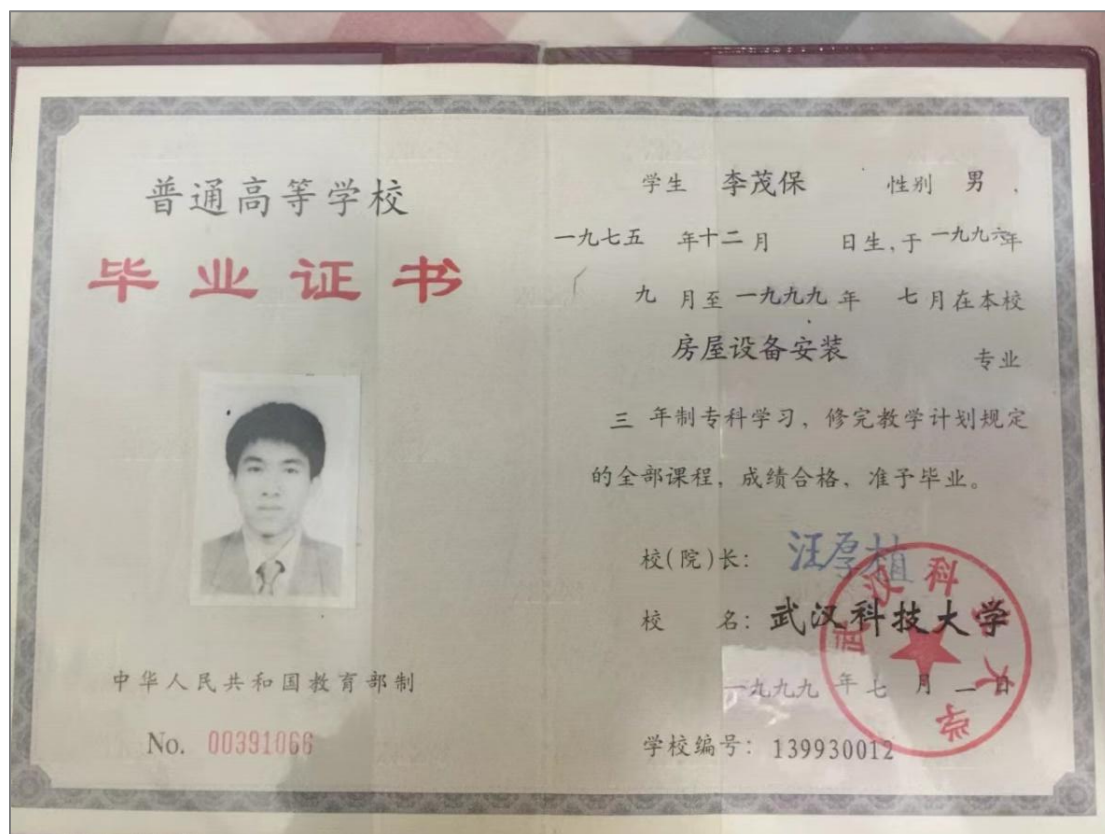 普通高等学校
毕业证书
中华人民共和国教育部制
No. 00391066
学生 李茂保 性别 男,
一九七五 年十二月 日生,于一九九六年
九 月至一九九九年 七月在本校
房屋设备安装 专业
三 年制专科学习,修完教学计划规定
的全部课程,成绩合格,准予毕业。
校(院)长: 汪厚植
校 名: 武汉科技大学
一九九九年七月一日
学校编号: 139930012
武汉科技大学